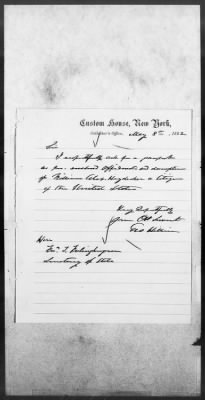 Custom House, New York,
Collector's Office, May 8th, 1882
Sir
I respectfully ask for a passport
as per enclosed affidavit and description
of William Alex. a Citizen
of the United States
Very Respectfully
Your Obt Servant
Geo
Hon
Fredk T. Frelinghuysen
Secretary of State